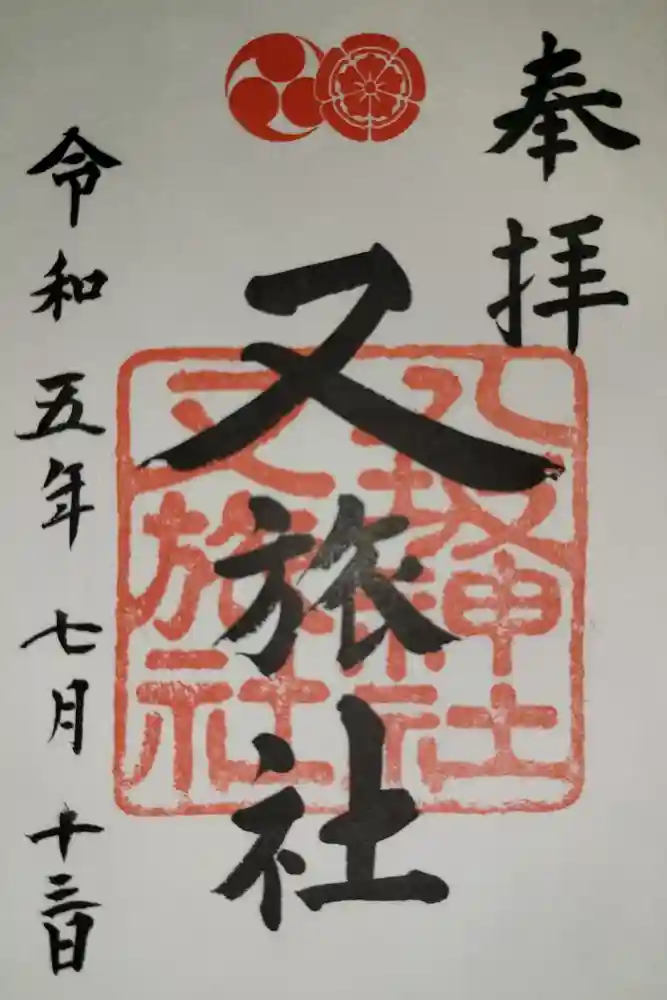 奉拝
八坂神社
又旅社
又旅社
令和五年七月十三日